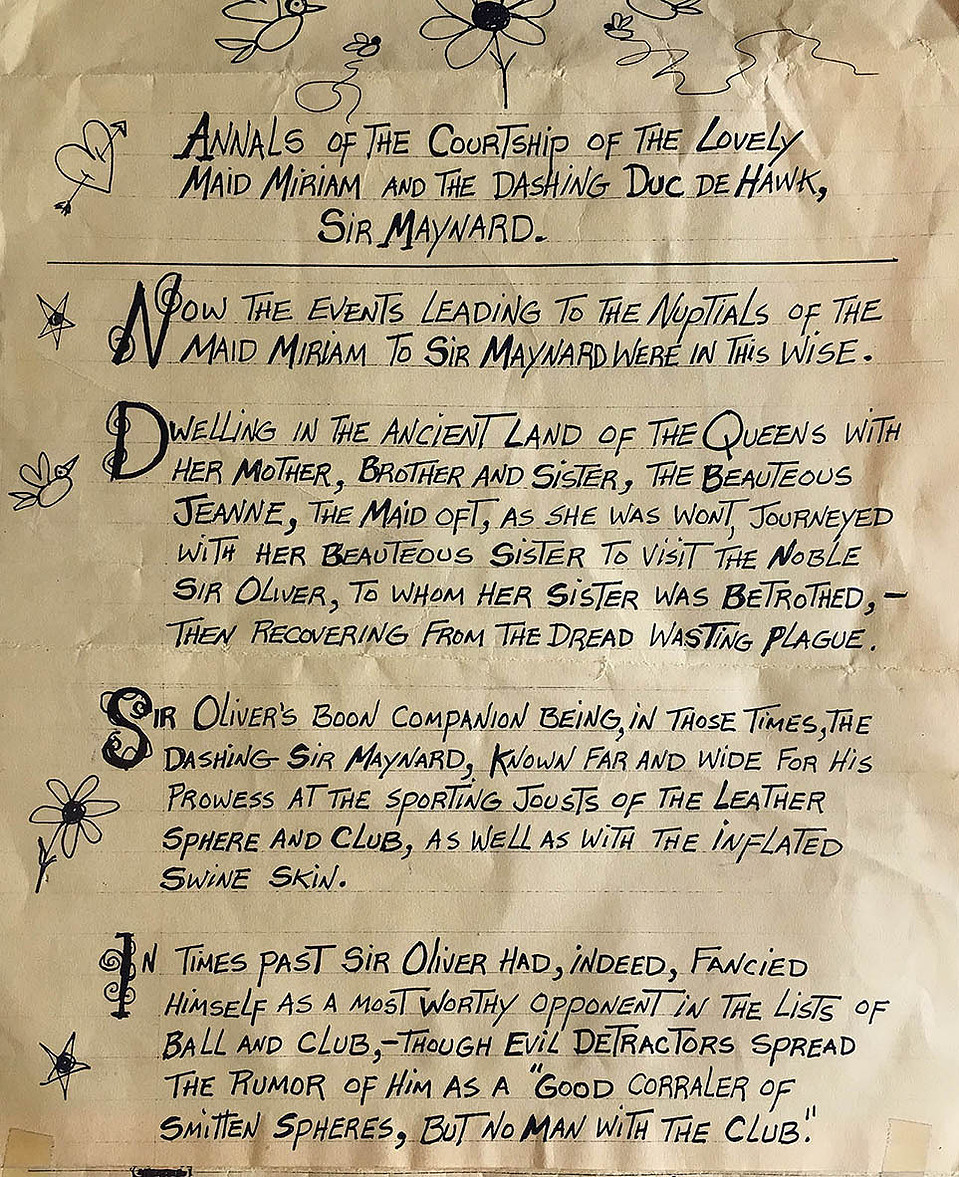 Annals of the Courtship of the Lovely
Maid Miriam and the Dashing Duc de Hawk,
Sir Maynard.
Now the events leading to the Nuptials of the
Maid Miriam to Sir Maynard were in this wise.
Dwelling in the Ancient Land of the Queens with
her Mother, Brother and Sister, the Beauteous
Jeanne, the Maid oft, as she was wont, journeyed
with her Beauteous Sister to visit the Noble
Sir Oliver, to whom her Sister was Betrothed,–
then recovering from the Dread Wasting Plague.
Sir Oliver's boon companion being, in those times, the
Dashing Sir Maynard, known far and wide for his
prowess at the sporting Jousts of the Leather
Sphere and Club, as well as with the inflated
swine skin.
In times past Sir Oliver had, indeed, fancied
himself as a most worthy opponent in the lists of
Ball and Club,–though Evil Detractors spread
the rumor of him as a "Good corraler of
smitten spheres, but no man with the club."